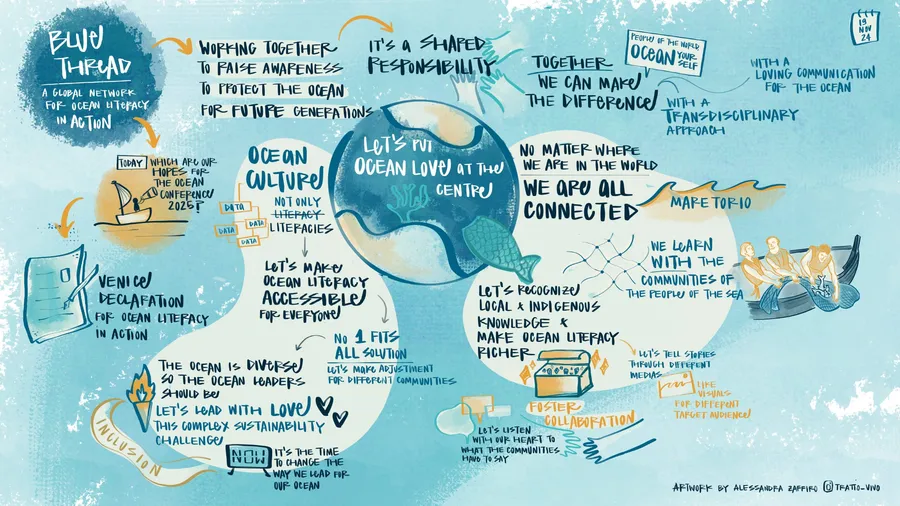 BLUE
THREAD
A GLOBAL NETWORK
FOR OCEAN LITERACY
IN ACTION
WORKING TOGETHER
TO RAISE AWARENESS
TO PROTECT THE OCEAN
FOR FUTURE GENERATIONS
IT'S A SHARED
RESPONSIBILITY
TOGETHER
WE CAN MAKE
THE DIFFERENCE
PEOPLE OF THE WORLD
OCEAN YOUR
SELF
WITH A
LOVING COMMUNICATION
FOR THE OCEAN
WITH A
TRANSDISCIPLINARY
APPROACH
19
NOV
24
TODAY
WHICH ARE OUR
HOPES FOR
THE OCEAN
CONFERENCE
2025?
VENICE
DECLARATION
FOR OCEAN LITERACY
IN ACTION
OCEAN
CULTURE
DATA
DATA
DATA
DATA
NOT ONLY
LITERACY
LITERACIES
LET'S MAKE
OCEAN LITERACY
ACCESSIBLE
FOR EVERYONE
NO 1 FITS
ALL SOLUTION
LET'S MAKE ADJUSTMENT
FOR DIFFERENT COMMUNITIES
THE OCEAN IS DIVERSE
SO THE OCEAN LEADERS
SHOULD BE
LET'S LEAD WITH LOVE
THIS COMPLEX SUSTAINABILITY
CHALLENGE
INCLUSION
NOW
IT'S THE TIME
TO CHANGE THE
WAY WE LEAD FOR
OUR OCEAN
LET'S PUT
OCEAN LOVE AT THE
CENTRE
NO MATTER WHERE
WE ARE IN THE WORLD
WE ARE ALL
CONNECTED
MARETORIO
WE LEARN
WITH THE
COMMUNITIES OF
THE PEOPLE OF THE SEA
LET'S RECOGNIZE
LOCAL & INDIGENOUS
KNOWLEDGE &
MAKE OCEAN LITERACY
RICHER
LET'S TELL STORIES
THROUGH DIFFERENT
MEDIAS
LIKE
VISUALS
FOR DIFFERENT
TARGET AUDIENCE
FOSTER
COLLABORATION
LET'S LISTEN
WITH OUR HEART TO
WHAT THE COMMUNITIES
HAVE TO SAY
ARTWORK BY ALESSANDRA ZAFFIRO @TRATTO_VIVO